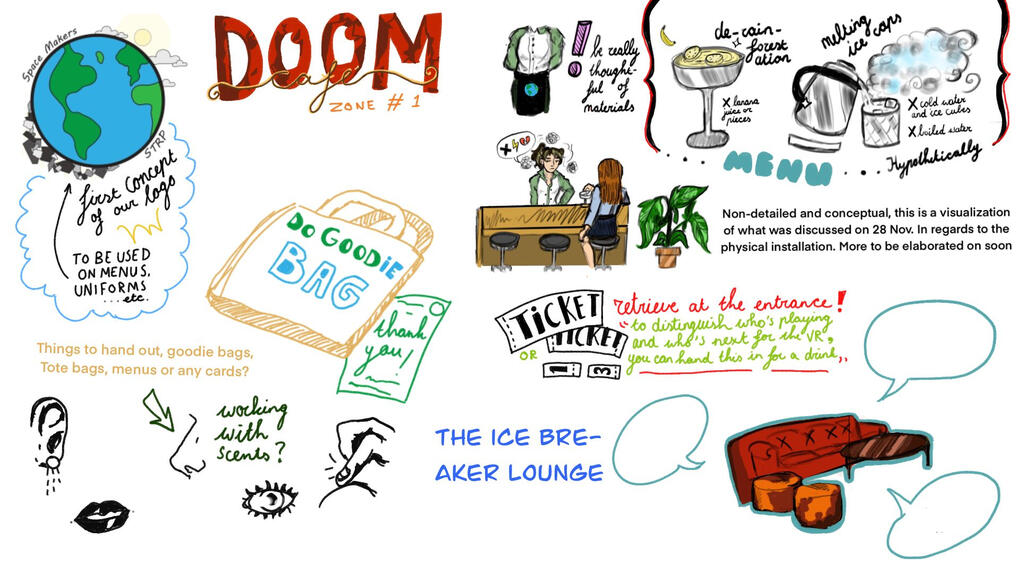 Space Makers
STRP
first concept
of our logo
TO BE USED
ON MENUS.
UNIFORMS
...etc.
DOOM
cafe
ZONE #1
be really
thought-
ful of
materials
de-rain-
forest
ation
x banana
juice or
pieces
melting
ice caps
x cold water
and ice cubes
x boiled water
.... MENU ....
Hypothitically
Non-detailed and conceptual, this is a visualization
of what was discussed on 28 Nov. In regards to the
physical installation. More to be elaborated on soon
DO GOODiE
BAG
thank
you!
Things to hand out, goodie bags,
Tote bags, menus or any cards?
TiCKET
OR
TICKET
1 3
retrieve at the entrance!
"to distinguish who's playing
and who's next for the VR,
you can hand this in for a drink,,
working
with
scents?
THE ICE BRE-
AKER LOUNGE